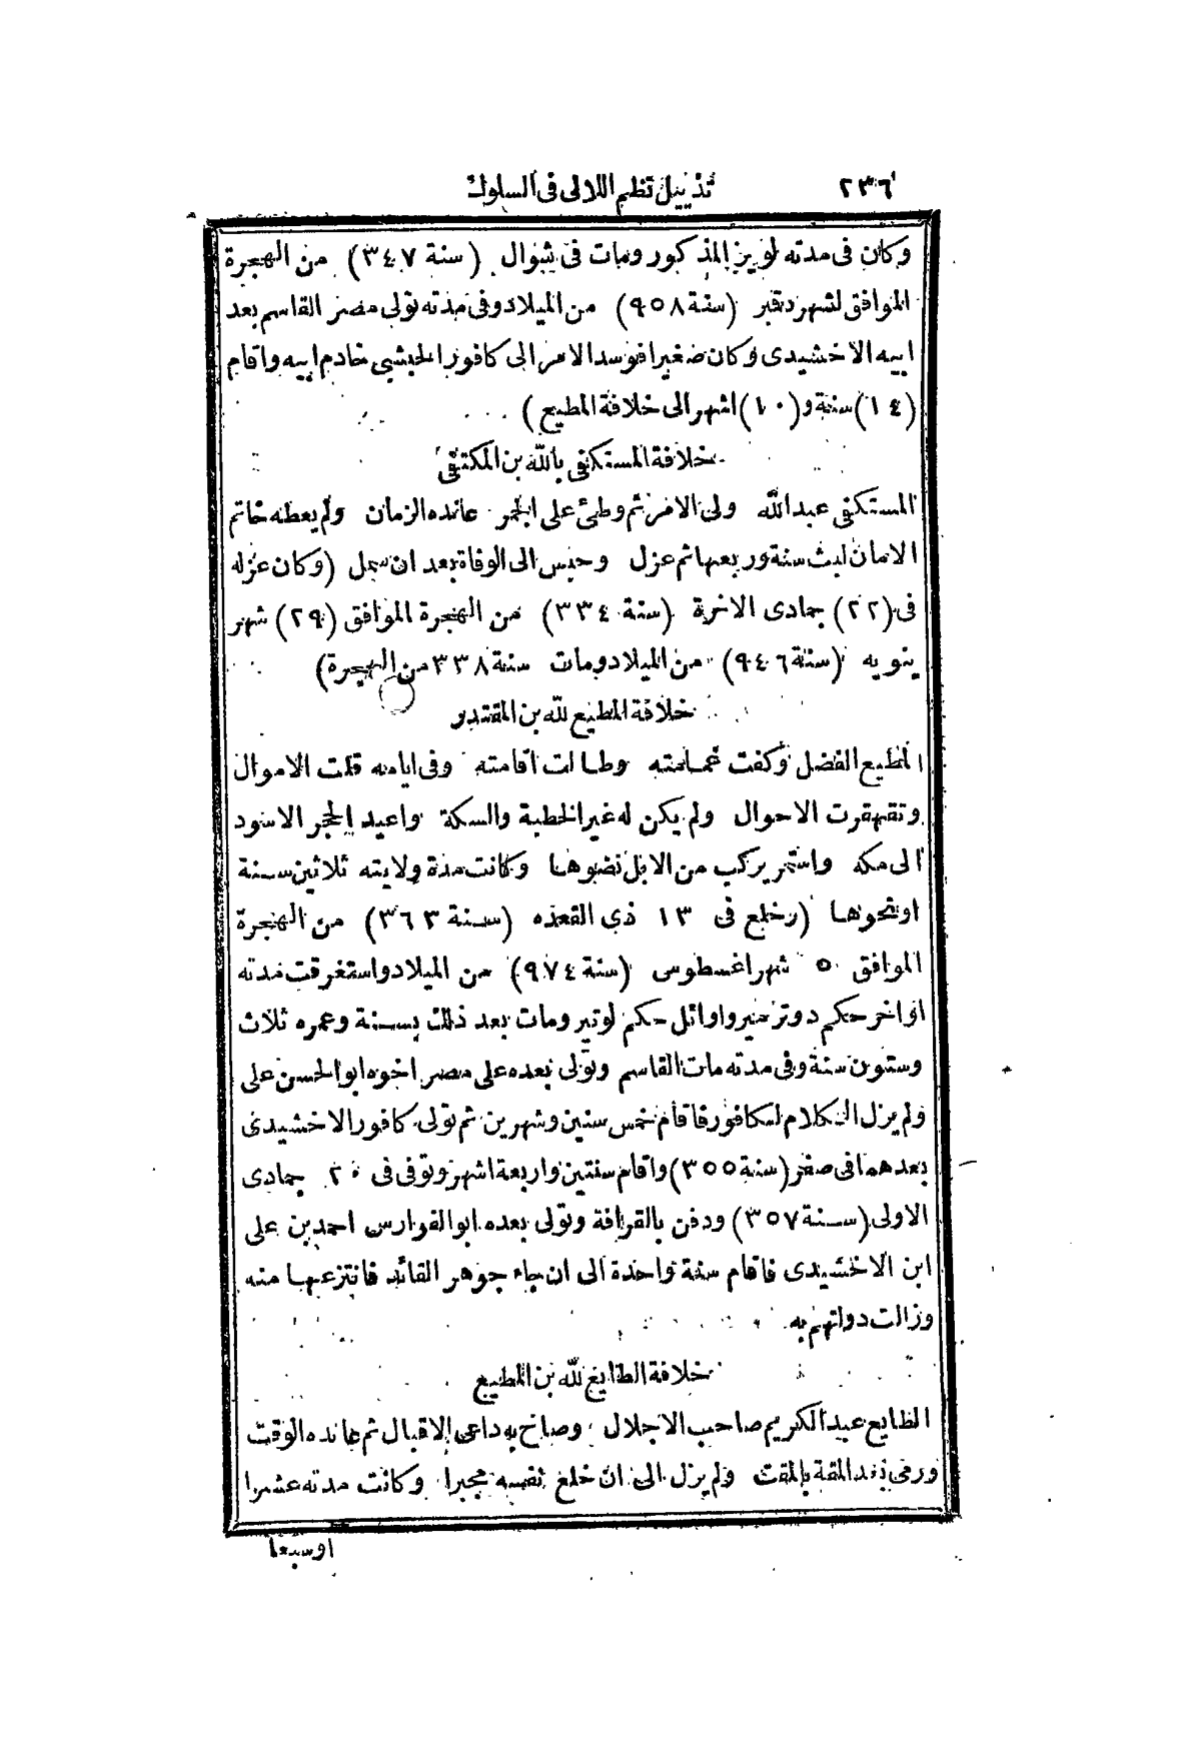 ٢٣٦ تذييل نظم اللالى فى السلوك
وكان فى مدته لويز المذكور ومات فى شوال (سنة ٣٤٧) من الهجرة
الموافق لشهر دقبر (سنة ٩٥٨) من الميلاد وفى مدته تولى مصر القاسم بعد
ابيه الاخشيدى وكان صغيرا فوسد الامر الى كافور الحبشى خادم ابيه واقام
(١٤) سنة و (١٠) اشهر الى خلافة المطيع)
خلافة المستكفى بالله بن المكتفى
المستكفى عبدالله ولى الامر ثم وطئ على الجمر عانده الزمان ولم يعطه خاتم
الامان لبث سنة وربعها ثم عزل وحبس الى الوفاة بعد ان سمل (وكان عزله
فى (٢٢) جمادى الاخرة (سنة ٣٣٤) من الهجرة الموافق (٢٩) شهر
ينويه (سنة ٩٤٦) من الميلاد ومات سنة ٣٣٨ من الهجرة)
خلافة المطيع لله بن المقتدر
المطيع الفضل وكفت غمامته وطالت اقامته وفى ايامه قلت الاموال
وتقهقرت الاحوال ولم يكن له غير الخطبة والسكة واعيد الحجر الاسود
الى مكه واستمر يركب من الابل نضوها وكانت مدة ولايته ثلاثين سنة
او نحوها (وخلع فى ١٣ ذى القعده (سنة ٣٦٣) من الهجرة
الموافق ٥ شهر اغسطوس (سنة ٩٧٤) من الميلاد واستغرقت مدته
اواخر حكم دوترمير واوائل حكم لوتير ومات بعد ذلك بسنة وعمره ثلاث
وستون سنة وفى مدته مات القاسم وتولى بعده على مصر اخوه ابوالحسن على
ولم يزل الكلام لكافور فاقام خمس سنين وشهرين ثم تولى كافور الاخشيدى
بعدهما فى صفر (سنة ٣٥٥) واقام سنتين واربعة اشهر وتوفى فى ٢٠ جمادى
الاولى (سنة ٣٥٧) ودفن بالقرافة وتولى بعده ابوالفوارس احمد بن على
ابن الاخشيدى فاقام سنة واحدة الى ان جاء جوهر القائد فانتزعها منه
وزالت دولتهم به
خلافة الطايع لله بن المطيع
الطايع عبدالكريم صاحب الاجلال وصاح به داعى الاقبال ثم عانده الوقت
ورمى بعد المقة بالمقت ولم يزل الى ان خلع نفسه مجبرا وكانت مدته عشرا
اوسبعا